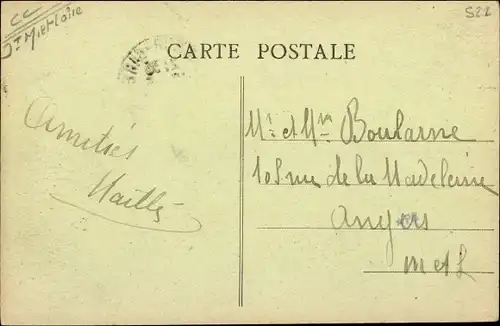 CC
S22
CARTE POSTALE
Amitiés
Maillé
Mr et Mme Boularne
108 rue de la Madeleine
Angers
M et L